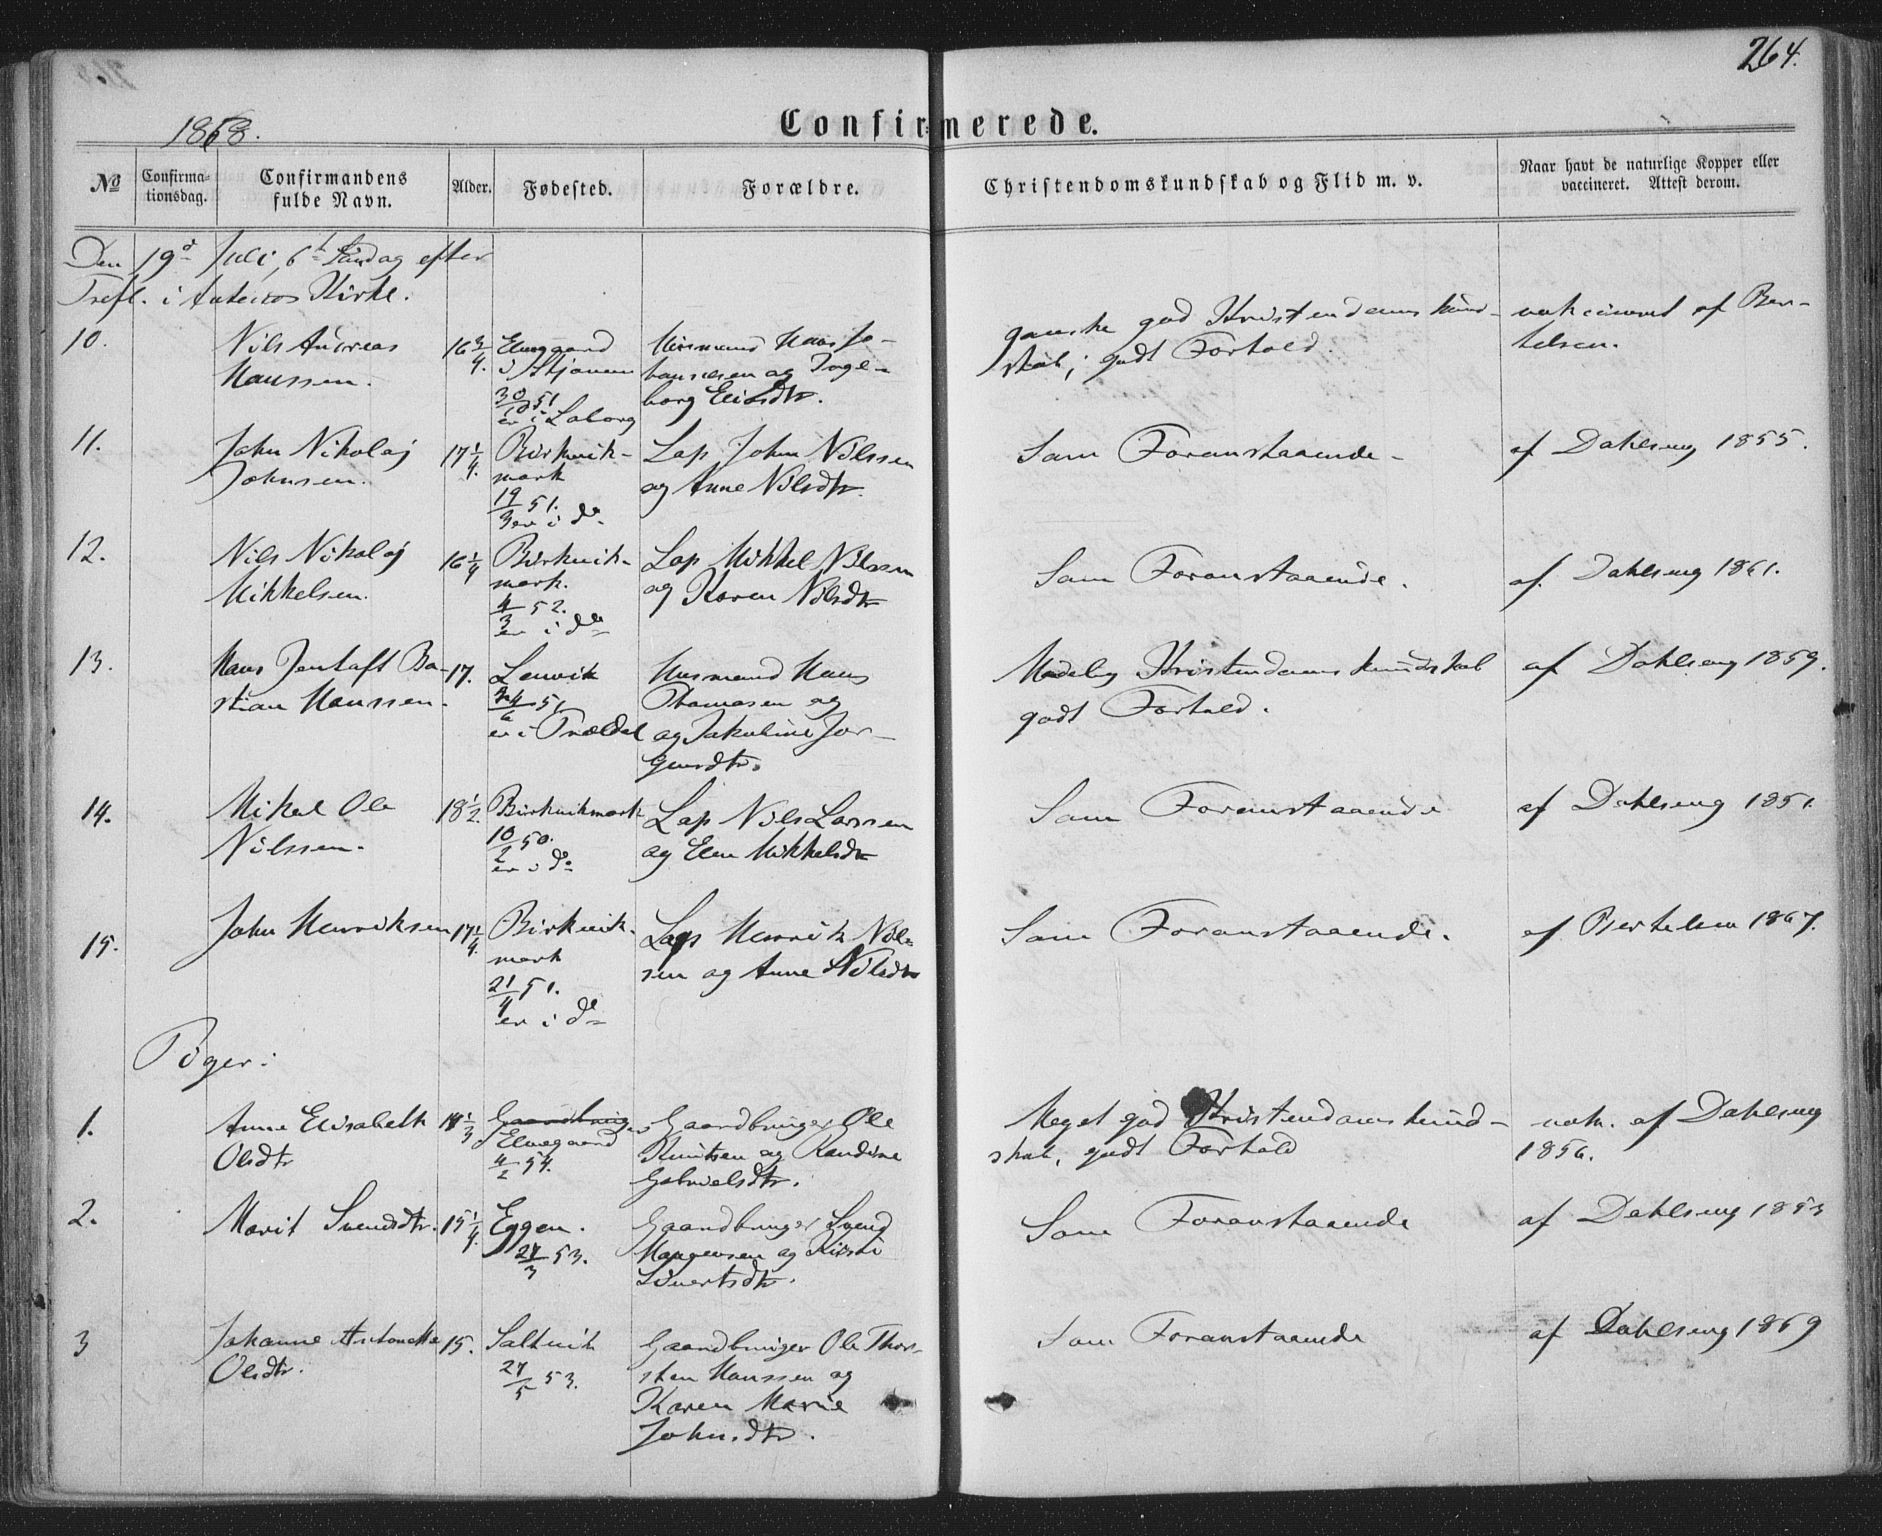 264.
1868.
Confirmerede.
No
Confirmationsdag.
Confirmandens fulde Navn.
Alder.
Fødested.
Forældre.
Christendomskundskab og Flid m. v.
Naar havt de naturlige Kopper eller vaccineret. Attest derom.
Den 19d Juli, 6t Søndag efter
Tref. i Ankenes Kirke.
10.
Nils Andreas
Hanssen.
16 3/4.
Elvegaard
i Skjomen
30/10 51
er i Laberg
Husmand Hans Jo-
hannesen og Inge-
borg Eliasdtr.
ganske god Kristendomskund-
skab; godt Forhold.
vakcineret af Ber-
telsen.
11.
John Nikolaj
Johnsen.
17 1/4.
Birkvik-
mark
19/3 51.
er i do
Lap John Nilssen
og Anne Nilsdtr.
Som Foranstaaende
af Dahlseng 1855.
12.
Nils Nikolaj
Mikkelsen.
16 1/4
Birkvik-
mark.
4/3 52.
er i do
Lap Mikkel Nilssen
og Karen Nilsdtr
Som Foranstaaende.
af Dahlseng 1861.
13.
Hans Jentoft Ba-
stian Hanssen.
17.
Lenvik
24/6 51
er i Trældal
Husmand Hans
Thomasen og
og Jakobine Jør-
gensdtr.
Madelig Kristendomskundskab
godt Forhold.
af Dahlseng 1859.
14.
Mikal Ole
Nilssen.
18 1/2.
Birkvikmark
10/2 50.
er i do
Lap Nils Larssen
og Elen Mikkelsdtr
Som Foranstaaende
af Dahlseng 1851.
15.
John Henriksen
17 1/4.
Birkvik-
mark
21/4 51.
er i do
Lap Henrik Nils-
sen og Anne Nilsdtr
Som Foranstaaende.
af Bertelsen 1867.
Piger:
1.
Anne Elisabeth
Olsdtr
14 1/3
Gaardbruger
Elvegaard
4/2 54.
Gaardbruger Ole
Knutsen og Randine
Gabrielsdtr.
Meget god Kristendomskund-
skab, godt Forhold
vak. af Dahlseng
1856.
2.
Marit Svendsdtr.
15 1/4.
Eggen.
27/3 53.
Gaardbruger Svend
Mogensen og Kirsti
Sivertsdtr.
Som Foranstaaende
af Dahlseng 1853
3
Johanne Antonette
Olsdtr.
15.
Saltvik
27/5 53.
Gaardbruger Ole Thor-
sten Hanssen og
Karen Marie
Johnsdtr.
Som Foranstaaende
af Dahlseng 1859